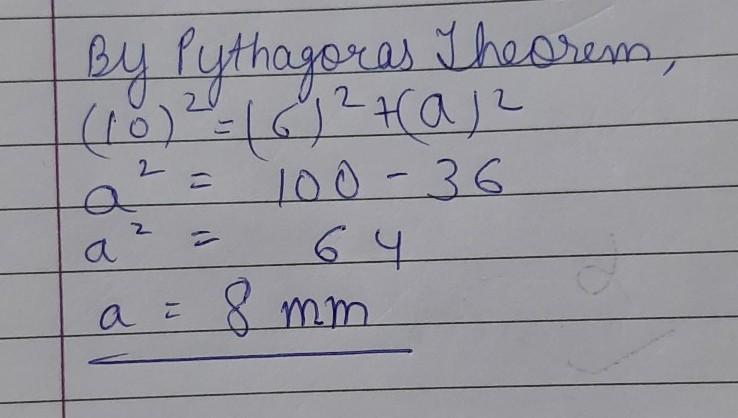 By Pythagoras Theorem,
(10)² = (6)² + (a)²
a² = 100 - 36
a² = 64
a = 8 mm